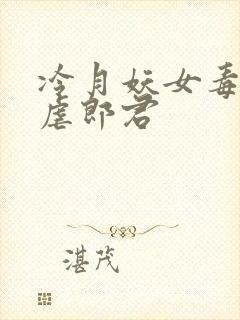 冷月妖女毒
虐郎君
湛茂